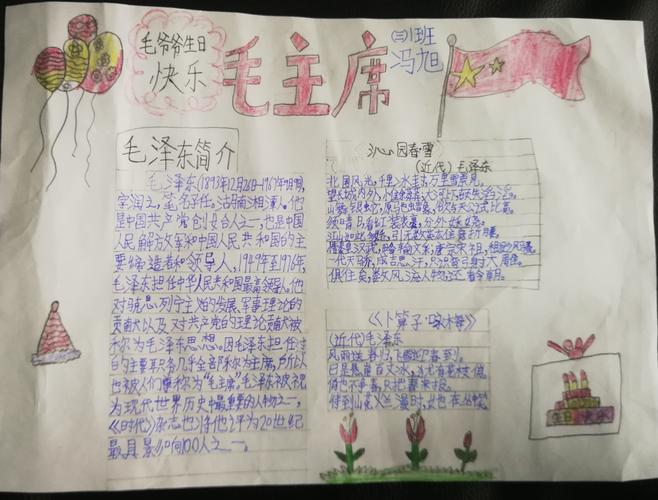 毛爷爷生日
快乐
毛主席
三(1)班
冯旭
毛泽东简介
毛泽东(1893年12月26日-1967年9月9日),
字润之,笔名子任。湖南湘潭人。他
是中国共产党创始人之一,也是中国
人民解放军和中国人民共和国的主
要缔造者和领导人,1949年至1976年,
毛泽东担任中华人民共和国最高领导人。他
对马克思列宁主义的发展、军事理论的
贡献以及对共产党的理论贡献被
称为毛泽东思想。因毛泽东担任过
的主要职务几乎全部称为主席,所以
也被人们尊称为“毛主席”。毛泽东被视
为现代世界历史中最重要的人物之一,
《时代》杂志也将他评为20世纪
最具影响100人之一。
沁园春·雪
(近代)毛泽东
北国风光,千里冰封,万里雪飘。
望长城内外,惟余莽莽,大河上下,顿失滔滔。
山舞银蛇,原驰蜡象,欲与天公试比高。
须晴日,看红装素裹,分外妖娆。
江山如此多娇,引无数英雄竞折腰。
惜秦皇汉武,略输文采,唐宗宋祖,稍逊风骚。
一代天骄,成吉思汗,只识弯弓射大雕。
俱往矣,数风流人物,还看今朝。
《卜算子·咏梅》
(近代)毛泽东
风雨送春归,飞雪迎春到。
已是悬崖百丈冰,犹有花枝俏。
俏也不争春,只把春来报。
待到山花烂漫时,她在丛中笑。
生日快乐